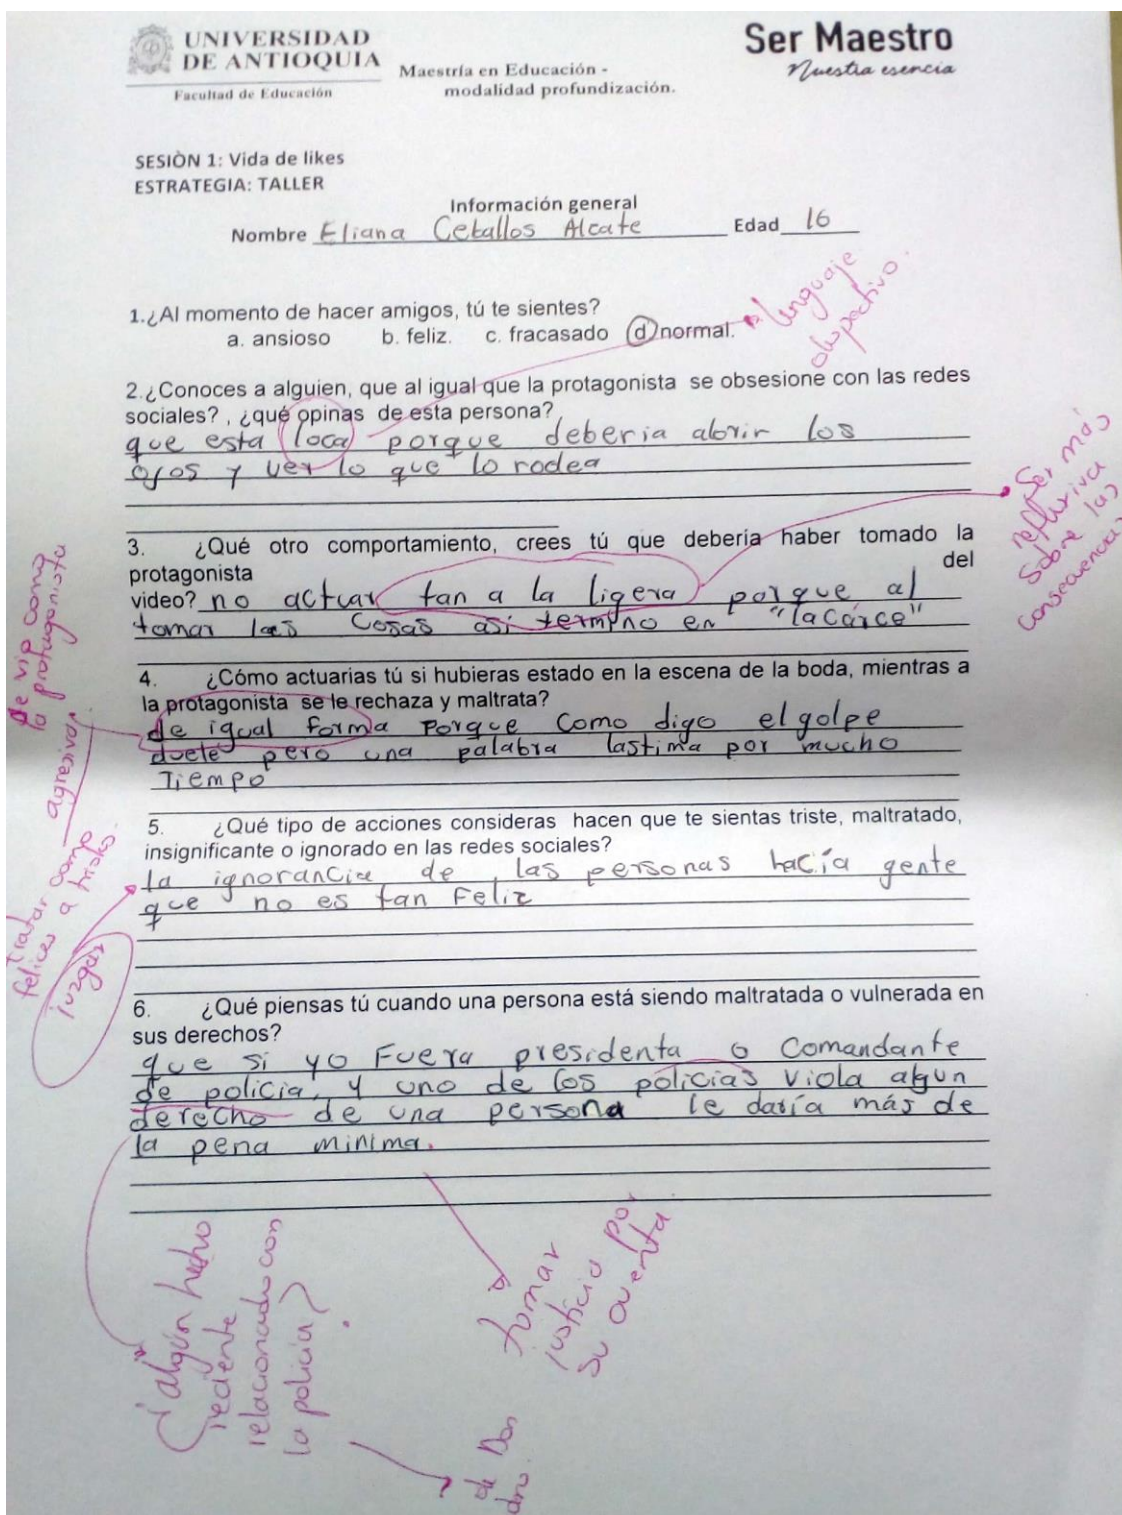 UNIVERSIDAD
DE ANTIOQUIA
Facultad de Educación
Maestría en Educación -
modalidad profundización.
Ser Maestro
Nuestra esencia
SESIÒN 1: Vida de likes
ESTRATEGIA: TALLER
Información general
Nombre Eliana Ceballos Alcate Edad 16
1.¿Al momento de hacer amigos, tú te sientes?
a. ansioso b. feliz. c. fracasado d normal.
lenguaje
2.¿Conoces a alguien, que al igual que la protagonista se obsesione con las redes
sociales? , ¿qué opinas de esta persona?
que esta loca porque deberia abrir los
ojos y ver lo que lo rodea
3. ¿Qué otro comportamiento, crees tú que debería haber tomado la
protagonista del
video? no actuar tan a la ligera porque al
tomar las cosas asi termino en "la carce"
Ser más
reflexiva
sobre las
consecuencias
4. ¿Cómo actuarias tú si hubieras estado en la escena de la boda, mientras a
la protagonista se le rechaza y maltrata?
de igual forma porque como digo el golpe
duele pero una palabra lastima por mucho
Tiempo
se vio como
la protagonista
agresiva.
5. ¿Qué tipo de acciones consideras hacen que te sientas triste, maltratado,
insignificante o ignorado en las redes sociales?
la ignorancia de las personas hacía gente
que no es tan Feliz
tratar como
felices a tristes.
juzgar
6. ¿Qué piensas tú cuando una persona está siendo maltratada o vulnerada en
sus derechos?
que si yo Fuera presidenta o comandante
de policia, y uno de los policias viola algun
derecho de una persona le daría más de
la pena minima.
¿algún hecho
reciente
relacionado con
la policía?
tomar
justicia por
su cuenta